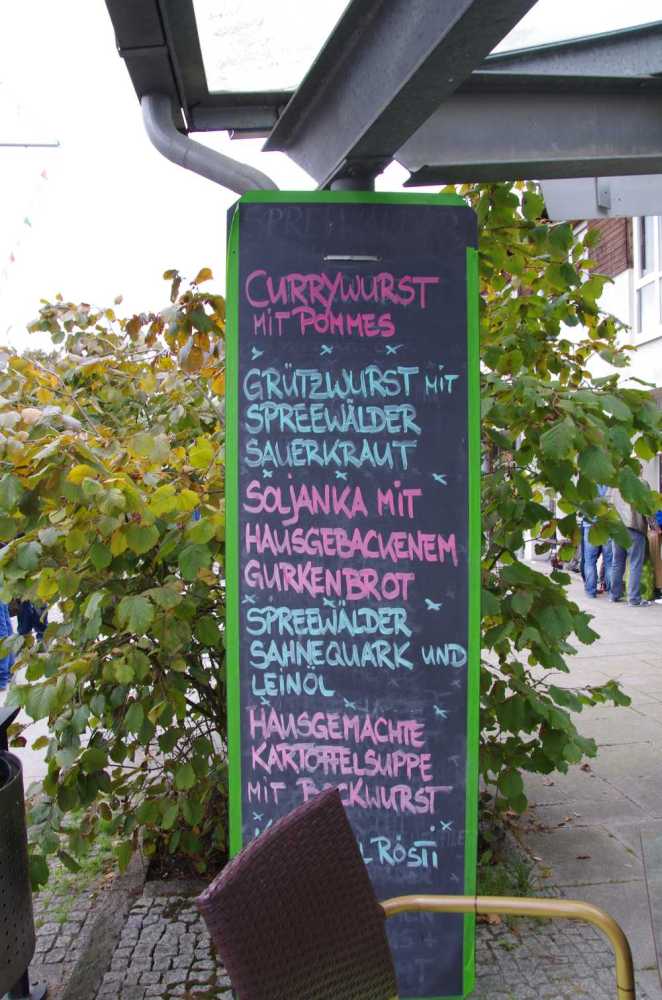 CURRYWURST
MIT POMMES
GRÜTZWURST MIT
SPREEWÄLDER
SAUERKRAUT
SOLJANKA MIT
HAUSGEBACKENEM
GURKENBROT
SPREEWÄLDER
SAHNEQUARK UND
LEINÖL
HAUSGEMACHTE
KARTOFFELSUPPE
MIT BOCKWURST
RÖSTI